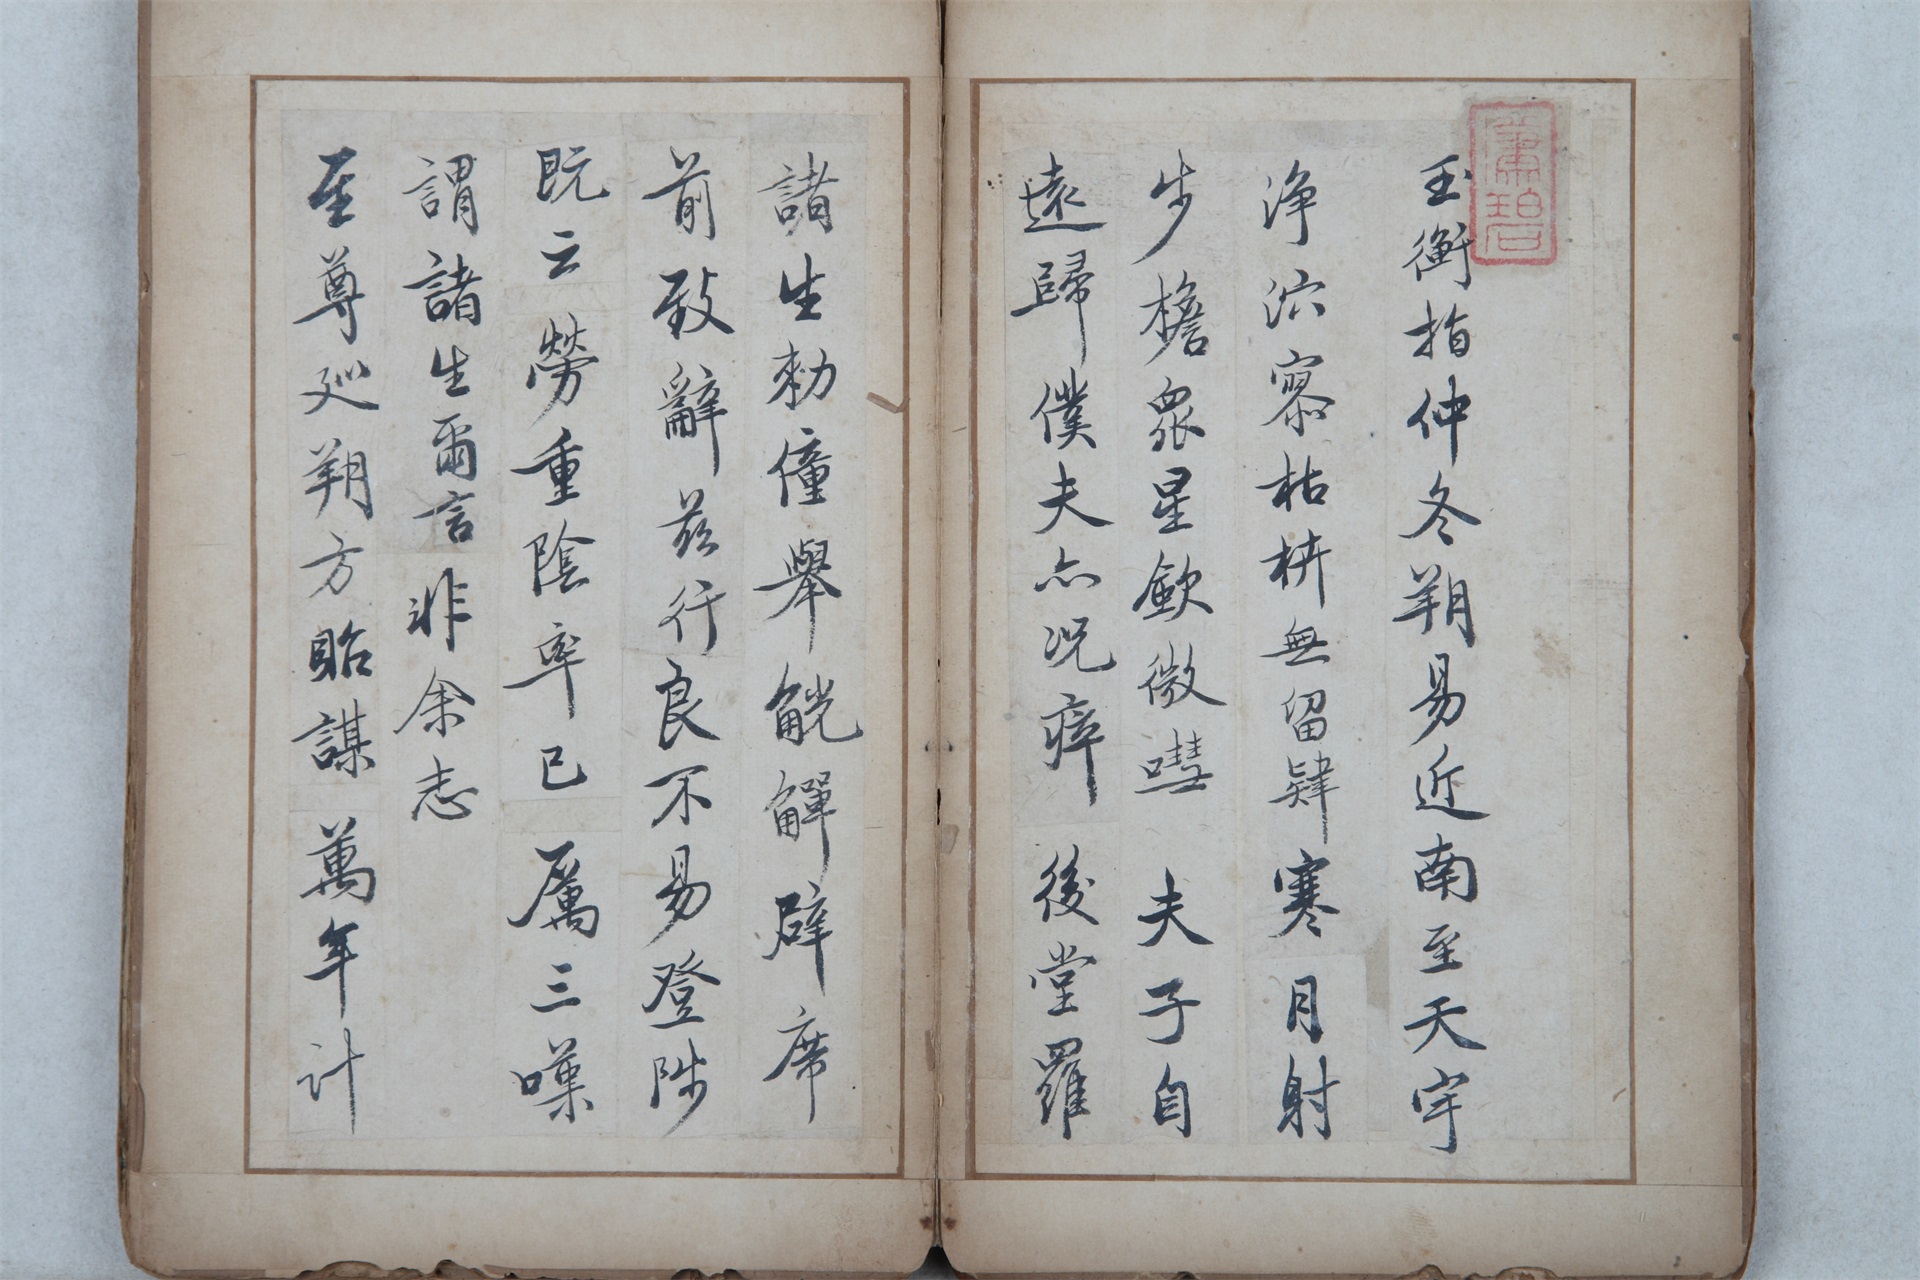 玉衡指仲冬朔易近南至天宇
淨泬寥枯枿無留肄寒月射
步檐衆星歛微嘒夫子自
遠歸僕夫亦況瘁後堂羅
諸生勑僮舉觥觶辟席
前致辭茲行良不易登陟
既云勞重陰率已厲三嘆
謂諸生爾言非余志
至尊巡朔方貽謀萬年計